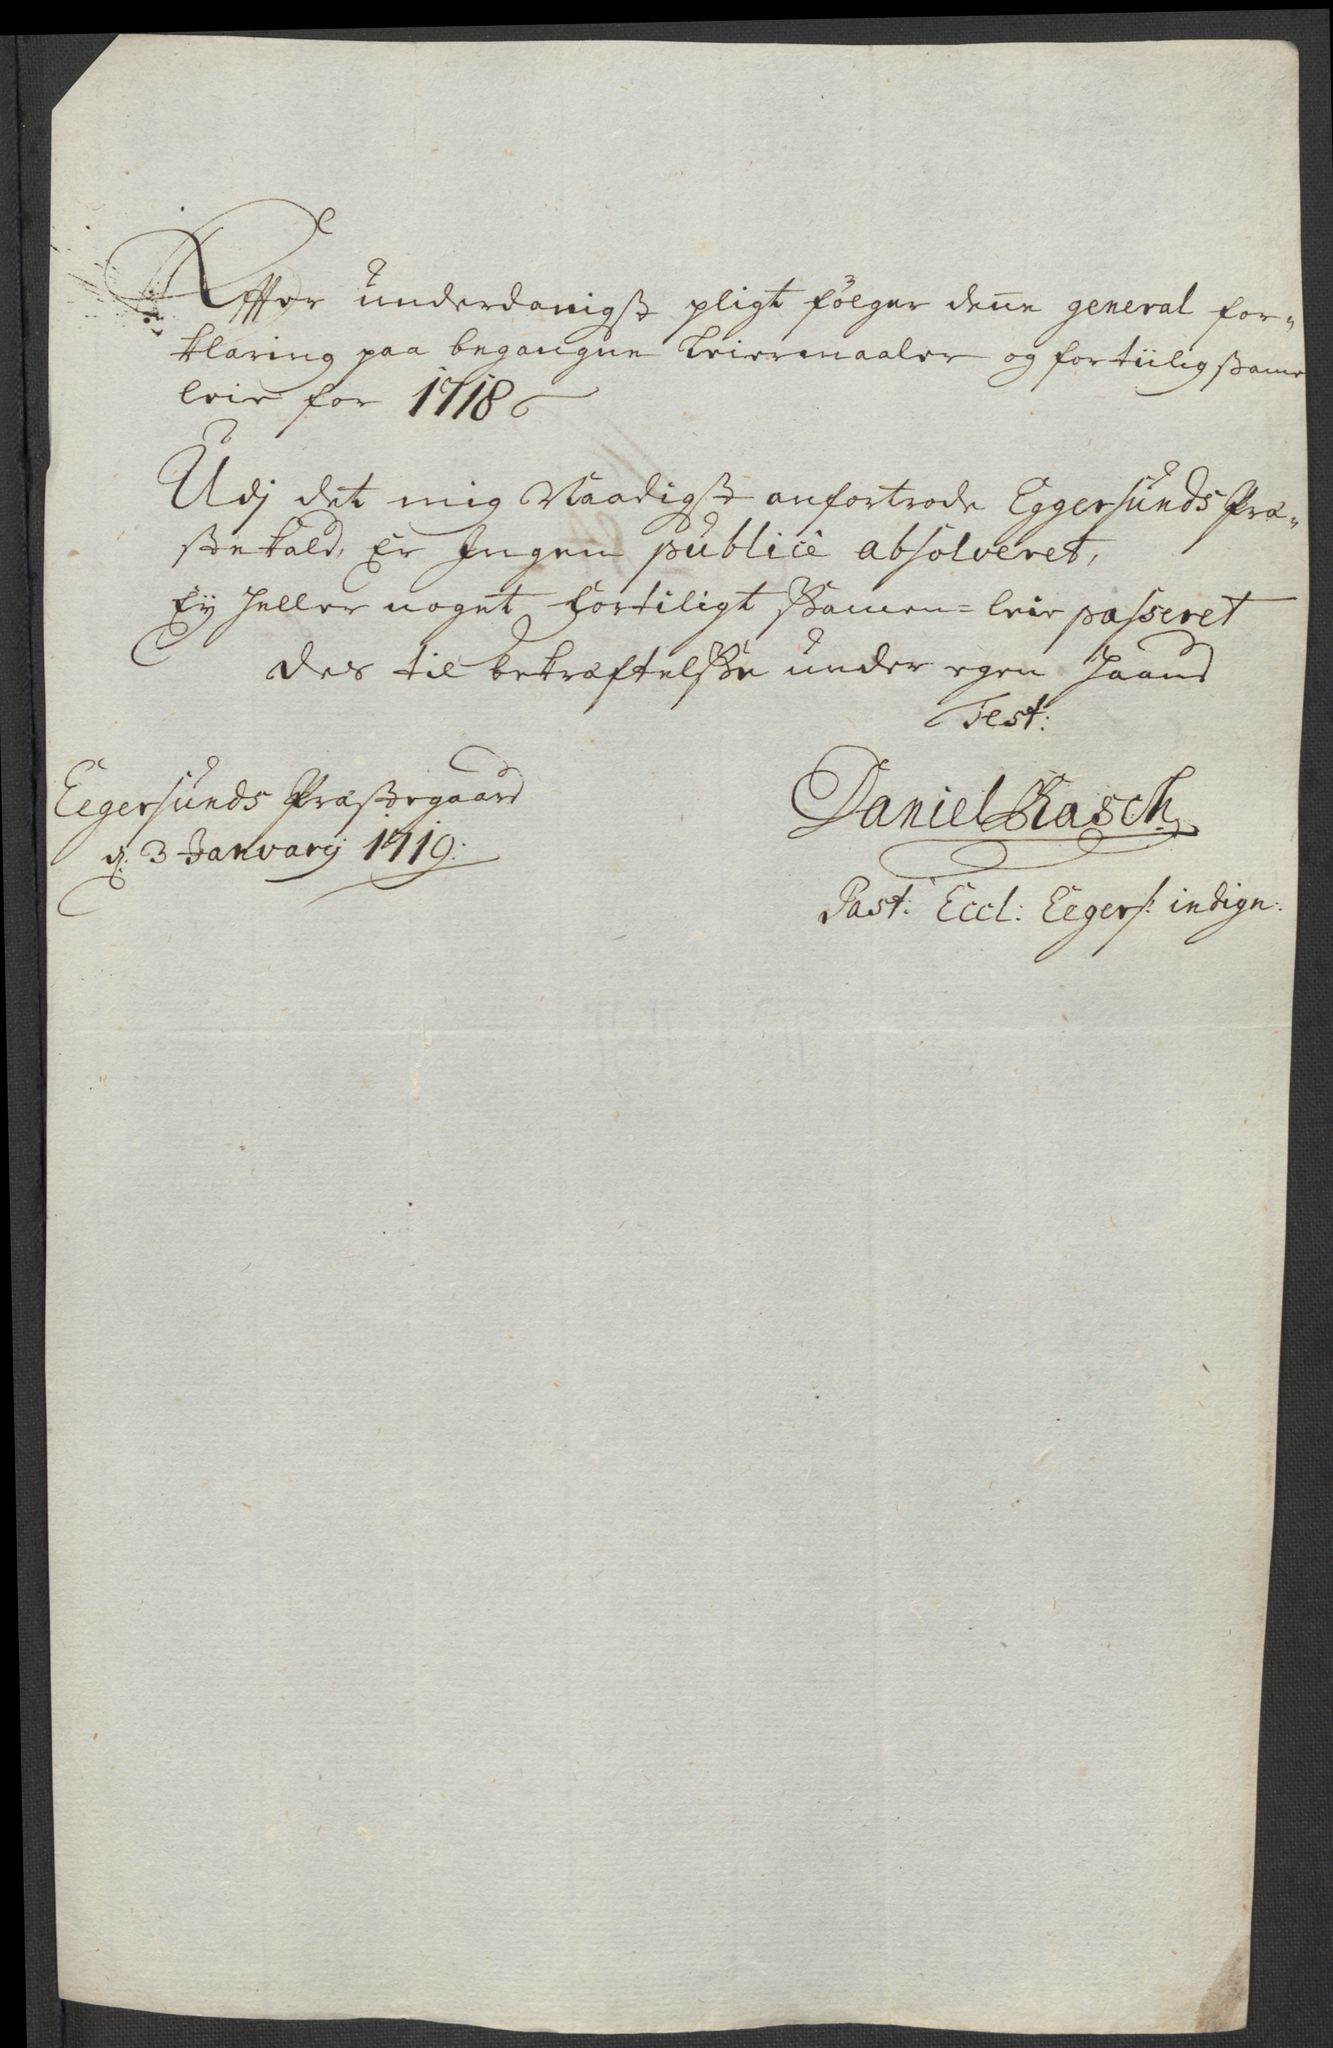 Effter underdanigst pligt følger denne general for=
klaring paa begangne Leiermaaler og fortiilig samme
leie for 1718
Udj det mig Naadigst anfortrode Eggersunds Præ=
stekald, Er Ingen publicè absolveret,
Ey heller noget fortiligt Sammen=leie passeret
des til bekræftelsse under egen Haand
Test:
Eegersunds Præstegaard
d: 3 January 1719:
Daniel Rasch
Past: Eccl: Eegers: indign: